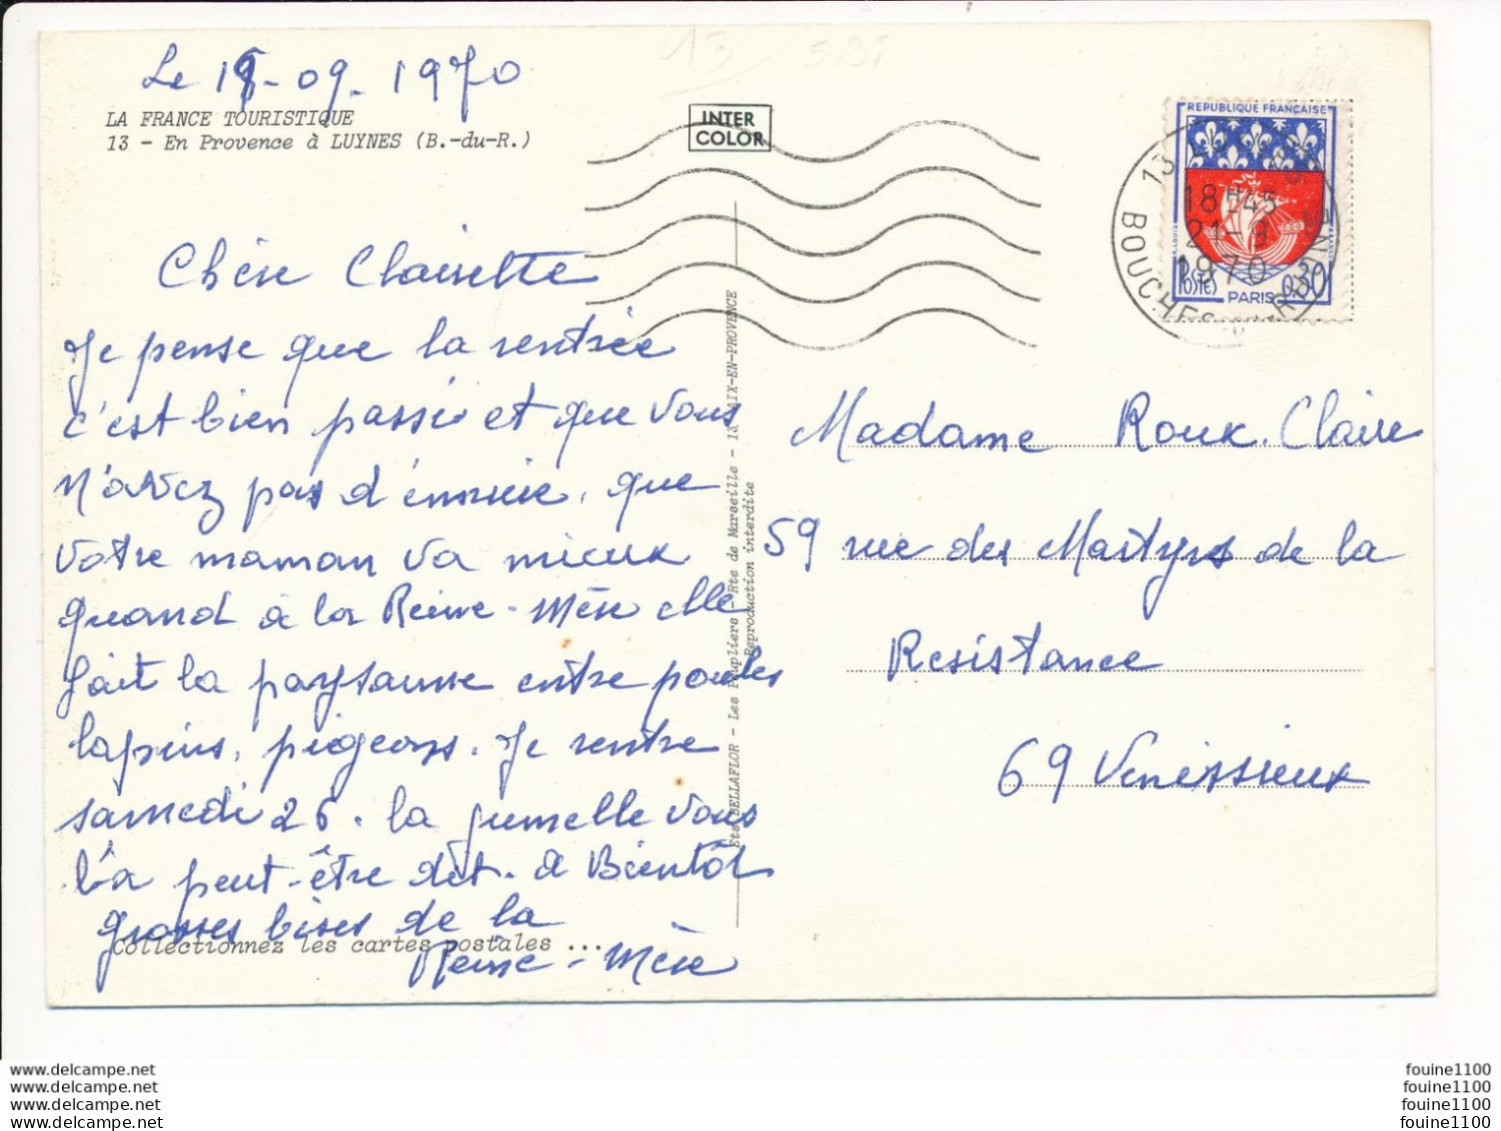 Le 18-09-1970
13 5,95
LA FRANCE TOURISTIQUE
13 - En Provence à LUYNES (B.-du-R.)
INTER
COLOR
REPUBLIQUE FRANÇAISE
18H45
21-9
1970
BOUCHES
POSTES
PARIS
0,30
Chère Clairette
Je pense que la rentrée
c'est bien passée et que vous
n'avez pas d'ennuie, que
votre maman va mieux
quand à la Reine-Mère elle
fait la paysanne entre poules
lapins, pigeons. Je rentre
samedi 26. la jumelle vous
l'a peut-être dit. à Bientôt
grosses bises de la
Reine-Mère
Collectionnez les cartes postales ...
Ets BELLAFLOR - Les Peupliers - Rte de Marseille - 13 AIX-EN-PROVENCE
Reproduction interdite
Madame Roux. Claire
59 rue des Martyrs de la
Resistance
69 Venissieux
www.delcampe.net
www.delcampe.net
www.delcampe.net
www.delcampe.net
fouine1100
fouine1100
fouine1100
fouine1100